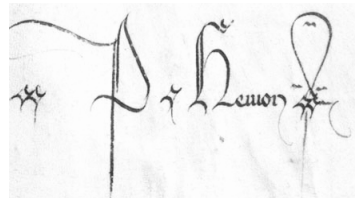 P Hemon